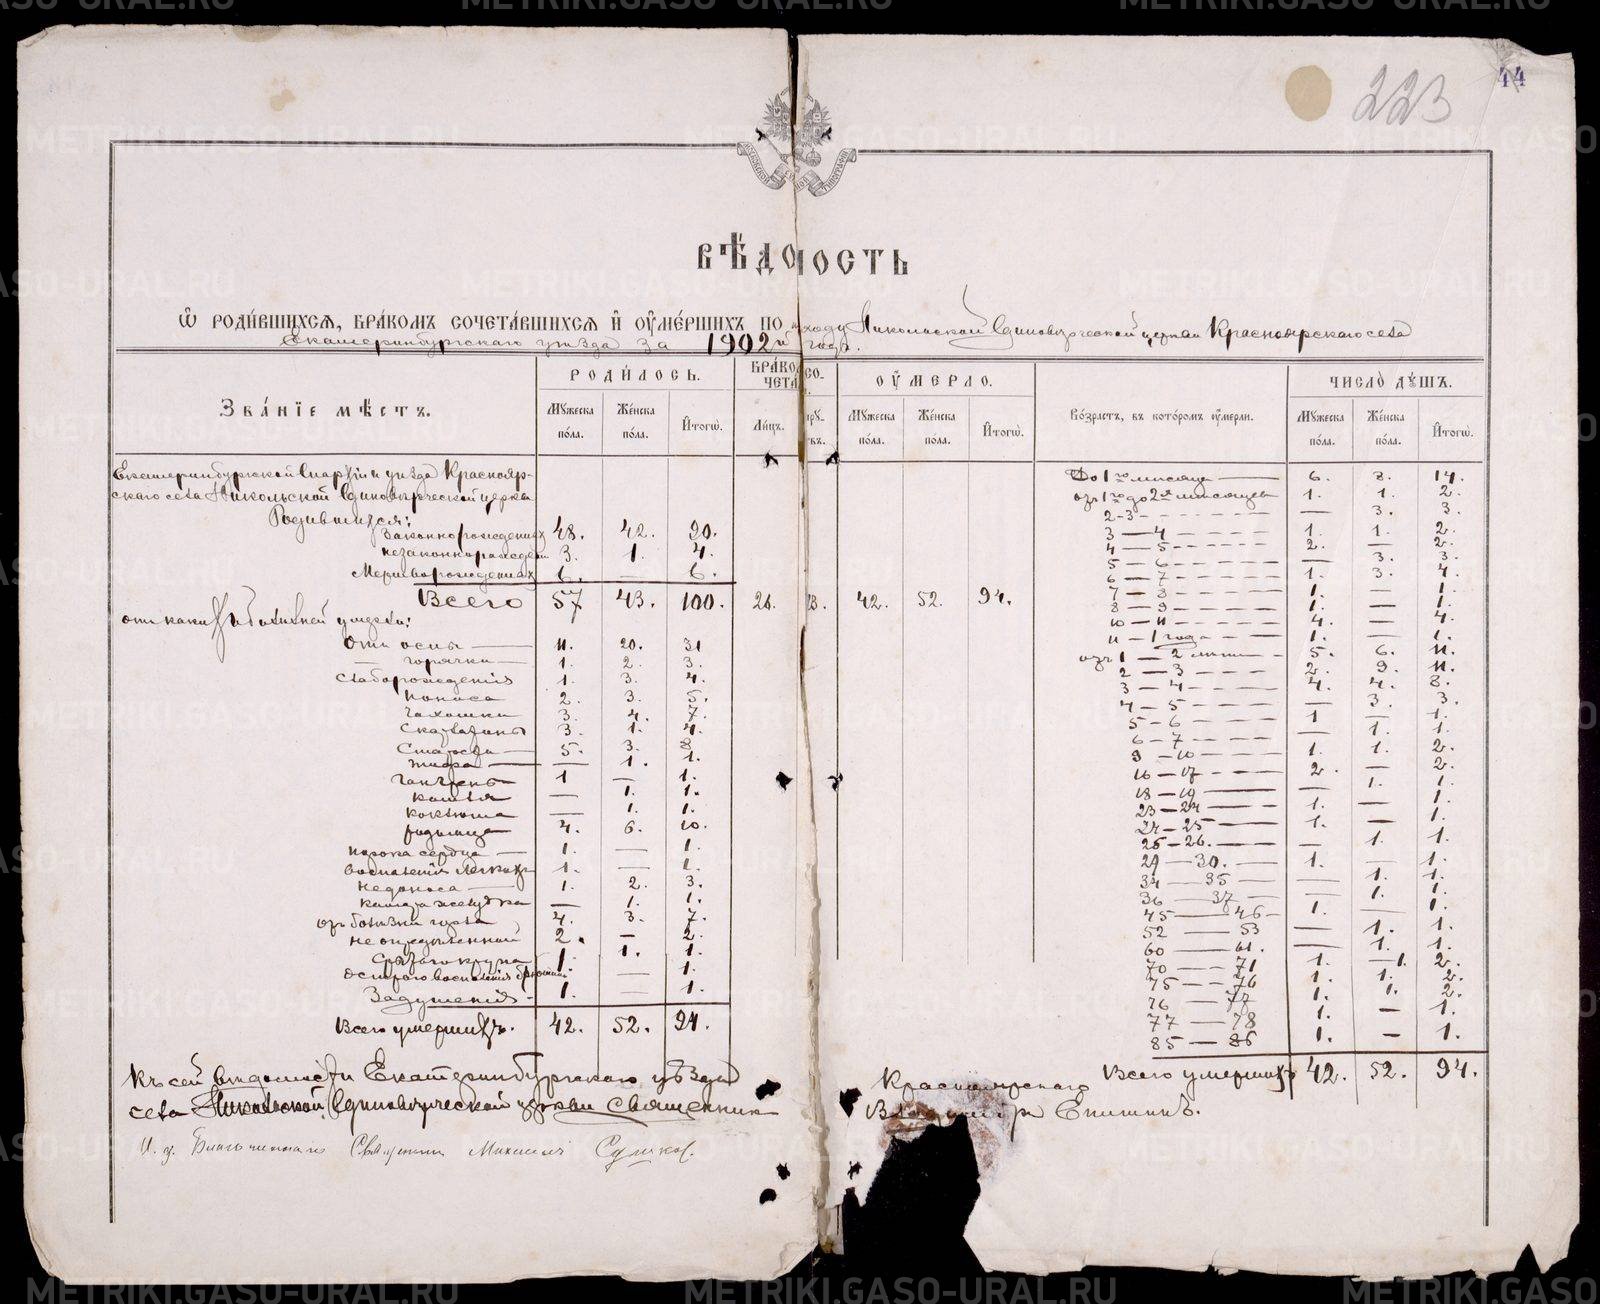 44
223
ВѢДОМОСТЬ
Ѡ РОДИ́ВШИХСЯ, БРА́КОМЪ СОЧЕТА́ВШИХСЯ И҆ ОУ҆МЕ́РШИХЪ ПО приходу Никольской Единовѣрческой церкви Красноярскаго села
Екатеринбургскаго уѣзда за 1902й годъ.
ЗВА́НІЕ МѢСТЪ.
РОДИ́ЛОСЬ.
Мꙋжеска по́ла. Же́нска по́ла. И҆тогѡ̀.
БРА́КОМЪ СОЧЕТА
Ли́цъ.
ОУ҆́МЕРЛО.
Мꙋжеска по́ла. Же́нска по́ла. И҆тогѡ̀.
Во́зрастъ, въ кото́ромъ оу҆́мерли.
ЧИСЛО̀ ДꙊШЪ.
Мꙋжеска по́ла. Же́нска по́ла. И҆тогѡ̀.
Екатеринбургской Епархіи и уѣзда Краснояр-
скаго села Никольской Единовѣрческой церкви
Родившихся:
Законнорожденныхъ 48. 42. 90.
Незаконнорожден 3. 1. 4.
Мертворожденныхъ 6. — 6.
Всего 57 43. 100. 26. 42. 52. 94.
отъ какихъ болѣзней умерли:
Отъ оспы 11. 20. 31
— горячки 1. 2. 3.
слаборожденія 1. 3. 4.
поноса 2. 3. 5.
чахотки 3. 4. 7.
скарлатины 3. 1. 4.
Старости 5. 3. 8
тифа — 1. 1.
1 — 1.
кашля — 1. 1.
коклюша — 1. 1.
родимца 4. 6. 10.
порока сердца 1. — 1.
воспаленія легкихъ 1. — 1.
недоноса 1. 2. 3.
катара желудка — 1. 1.
отъ болѣзни горла 4. 3. 7.
не опредѣленной 2. — 2.
крупа 1. 1.
острого воспаленія 1. — 1.
Задушенія 1. — 1.
Всего умершихъ. 42. 52. 94.
До 1го мѣсяца 6. 8. 14.
отъ 1го до 2хъ мѣсяцевъ 1. 1. 2.
2-3 — 3. 3.
3 — 4 1. 1. 2.
4 — 5 2. — 2.
5 — 6 — 3. 3.
6 — 7 1. 3. 4.
7 — 8 1. — 1.
8 — 9 1. — 1.
10 — 11 4. — 4.
11 — 1 года 1. — 1.
отъ 1 — 2 лѣтъ 5. 6. 11.
2 — 3 2. 9. 11.
3 — 4 4. 4. 8.
4 — 5 — 3. 3.
5 — 6 1 — 1.
6 — 7 — 1. 1.
9 — 10 1. 1. 2.
16 — 17 2. — 2.
18 — 19 — 1. 1.
23 — 24 1. — 1.
24 — 25 1. — 1.
25 — 26. — 1. 1.
29 — 30. 1. — 1.
34 — 35 — 1. 1.
36 — 37 — 1. 1.
45 — 46 1. — 1.
52 — 53 — 1. 1.
60 — 61. — 1. 1.
70 — 71 1. 1. 2.
75 — 76 1. 1. 2.
76 — 77 1. 1. 2.
77 — 78 1. — 1.
85 — 86 1. — 1.
Всего умершихъ 42. 52. 94.
Къ сей вѣдомости Екатеринбургскаго уѣзда Красноярскаго
села Никольской Единовѣрческой церкви Священник Владимиръ Епишинъ.
И. д. Благочиннаго Священник Михаилъ Сушков.
METRIKI.GASO-URAL.RU